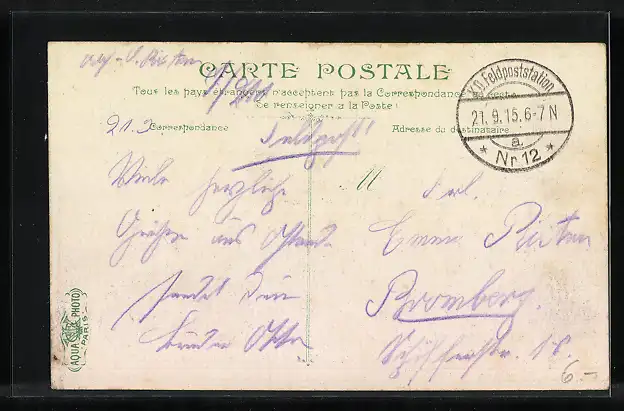 CARTE POSTALE
Tous les pays étrangers n'acceptent pas la Correspondance au recto
Se renseigner à la Poste!
K.D. Feldpoststation
21.9.15.6-7N
a.
* Nr 12 *
21.9
Correspondance
Adresse du destinataire
Feldpost!
Viele herzliche
Grüße aus Ostende
sendet Dein
Bruder Otto
Frl.
Bromberg.
AQUA PHOTO
PARIS
6.-